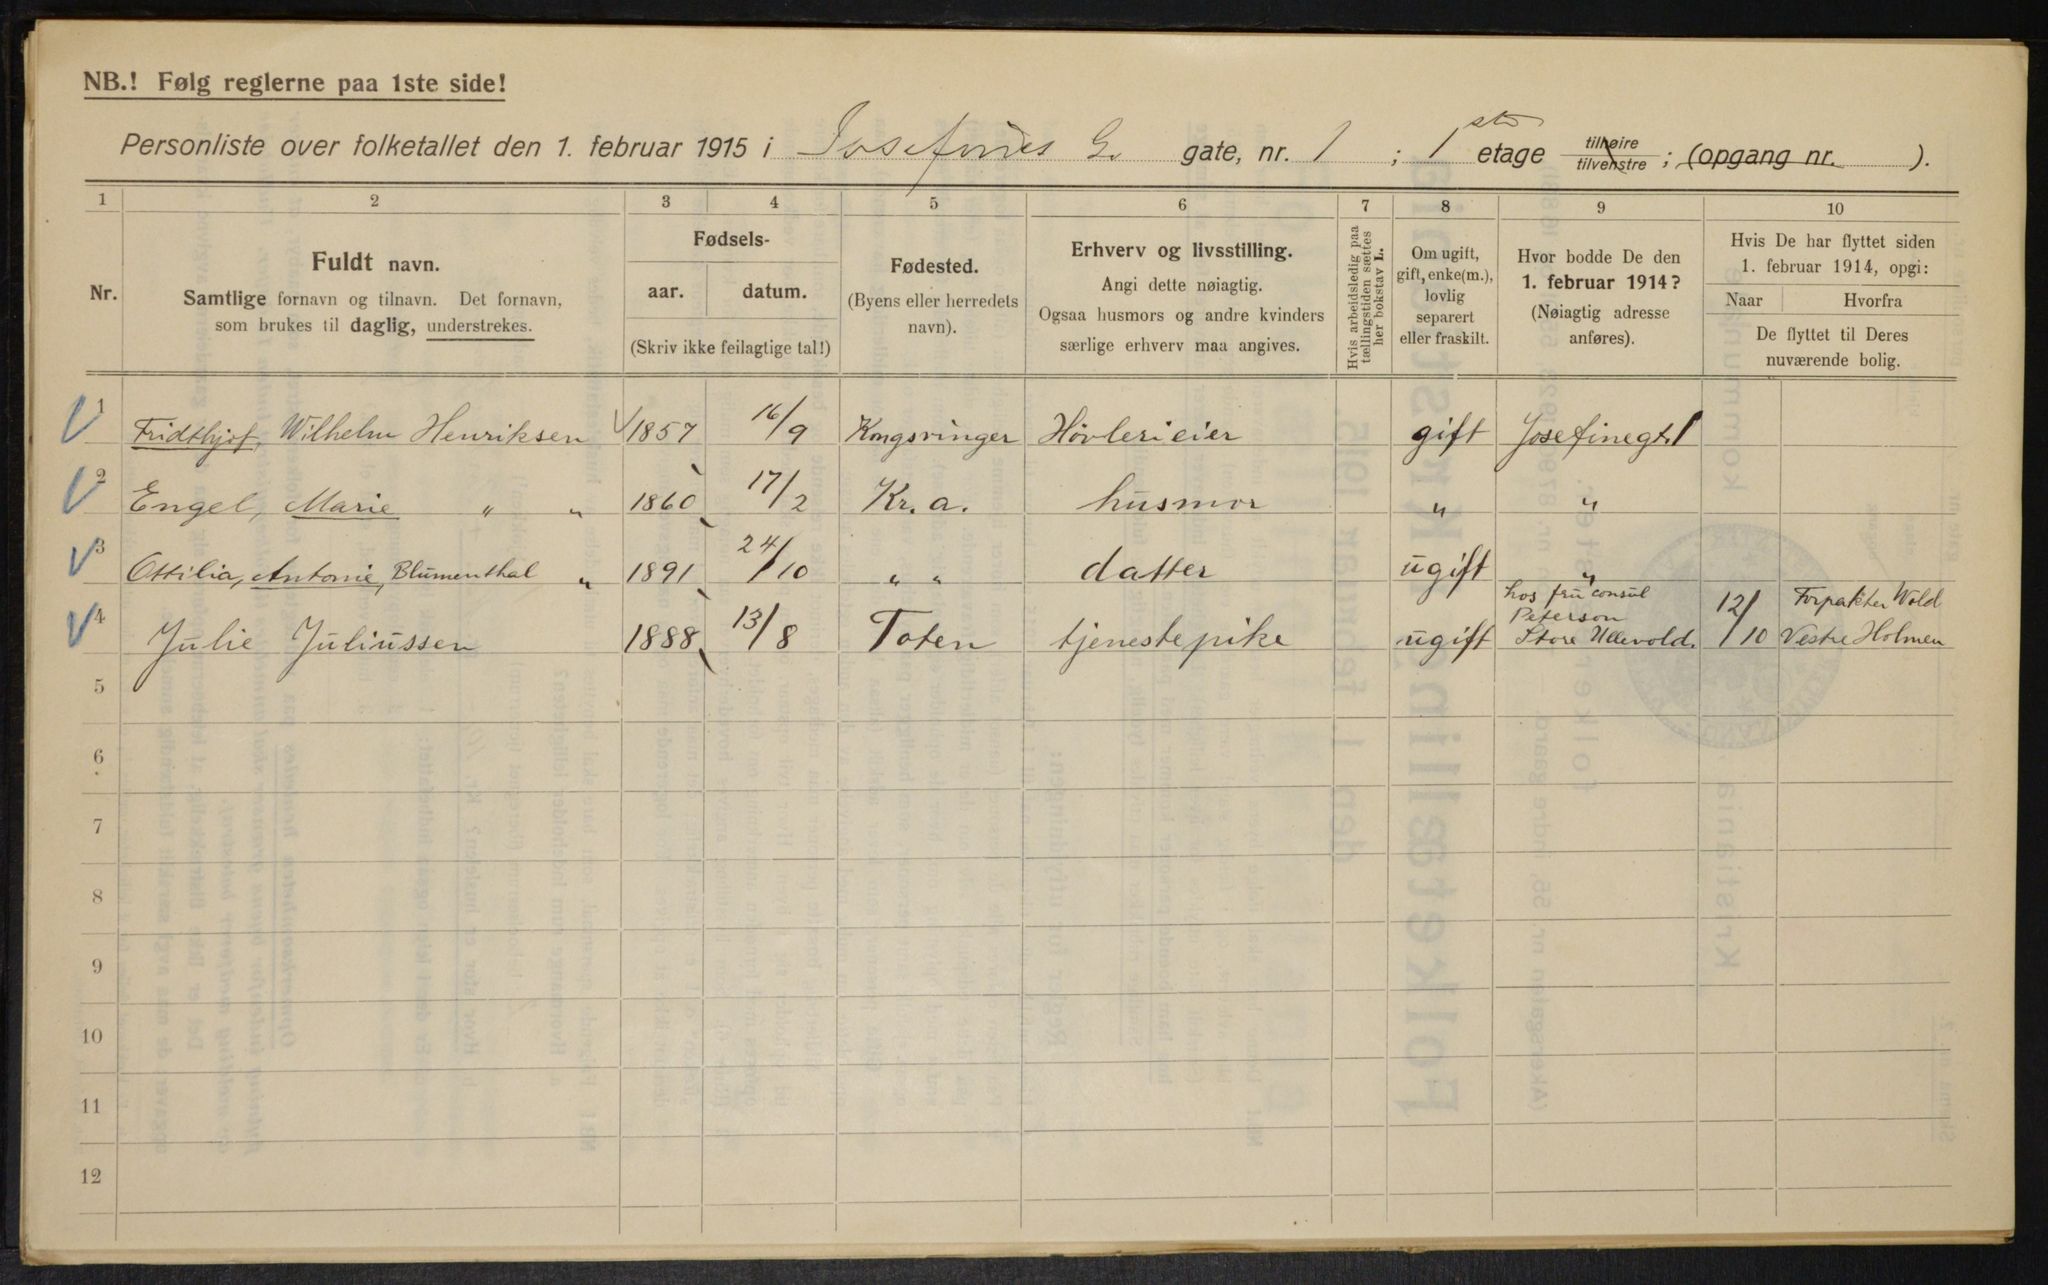 NB.! Følg reglerne paa 1ste side!
Personliste over folketallet den 1. februar 1915 i Josefines G. gate, nr. 1 ; 1ste etage tilhøire tilvenstre ; (opgang nr. ).
1 2 3 4 5 6 7 8 9 10
Nr.
Fuldt navn.
Samtlige fornavn og tilnavn. Det fornavn,
som brukes til daglig, understrekes.
Fødsels-
aar. datum.
(Skriv ikke feilagtige tal!)
Fødested.
(Byens eller herredets
navn).
Erhverv og livsstilling.
Angi dette nøiagtig.
Ogsaa husmors og andre kvinders
særlige erhverv maa angives.
Hvis arbeidsledig paa
tællingstiden sættes
her bokstav L.
Om ugift,
gift, enke(m.),
lovlig
separert
eller fraskilt.
Hvor bodde De den
1. februar 1914?
(Nøiagtig adresse
anføres).
Hvis De har flyttet siden
1. februar 1914, opgi:
Naar Hvorfra
De flyttet til Deres
nuværende bolig.
1 Fridthjof, Wilhelm Henriksen 1857 16/9 Kongsvinger Høvlerieier gift Josefinegt. 1
2 Engel, Marie " " 1860 17/2 Kr.a. husmor " "
3 Ottilia, Antonie, Blumenthal " 1891 24/10 " " datter ugift "
4 Julie Juliussen 1888 13/8 Toten tjenestepike ugift hos fru consul
Peterson
Store Ullevold. 12/10 Forpakter Wold
Vestre Holmen
5
6
7
8
9
10
11
12